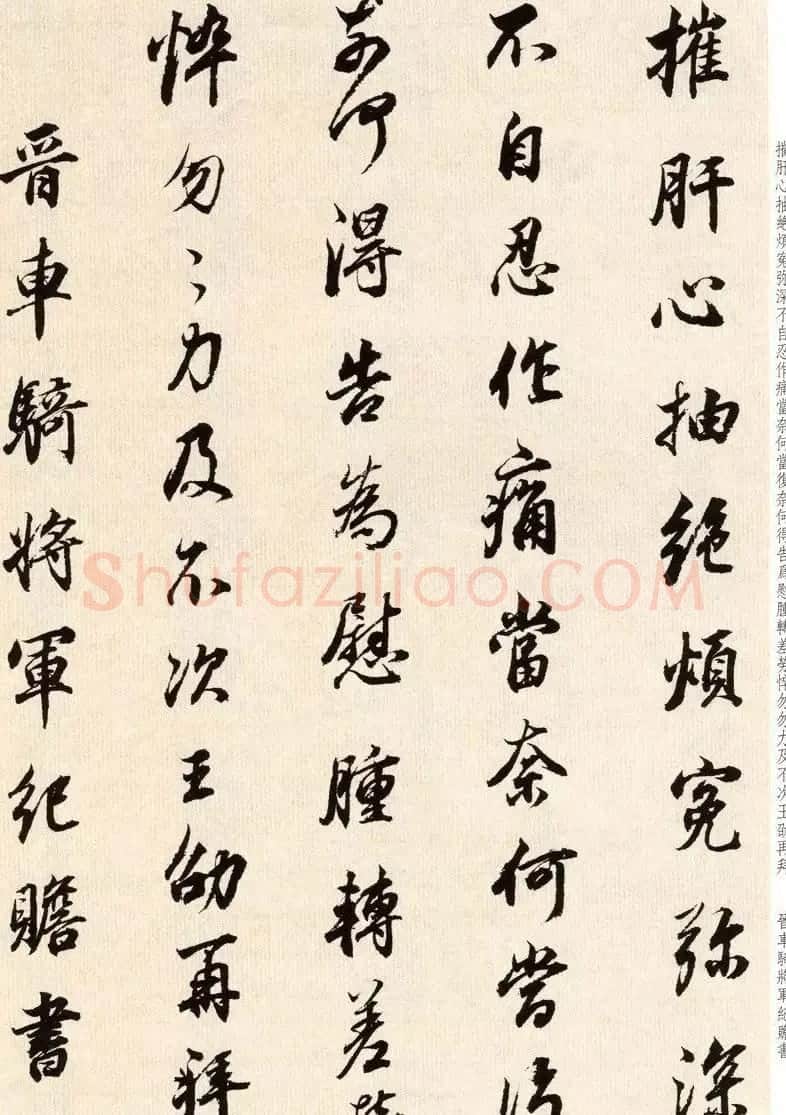 摧肝心抽絶煩寃弥深
不自忍作痛當奈何當復
奈何得告為慰腫轉差勞
悴勿〻力及不次王劭再拜
晉車騎將軍紀瞻書
摧肝心抽絶煩寃弥深不自忍作痛當奈何當復奈何得告爲慰腫轉差勞悴勿勿力及不次王劭再拜 晉車騎將軍紀瞻書
Shufaziliao.COM